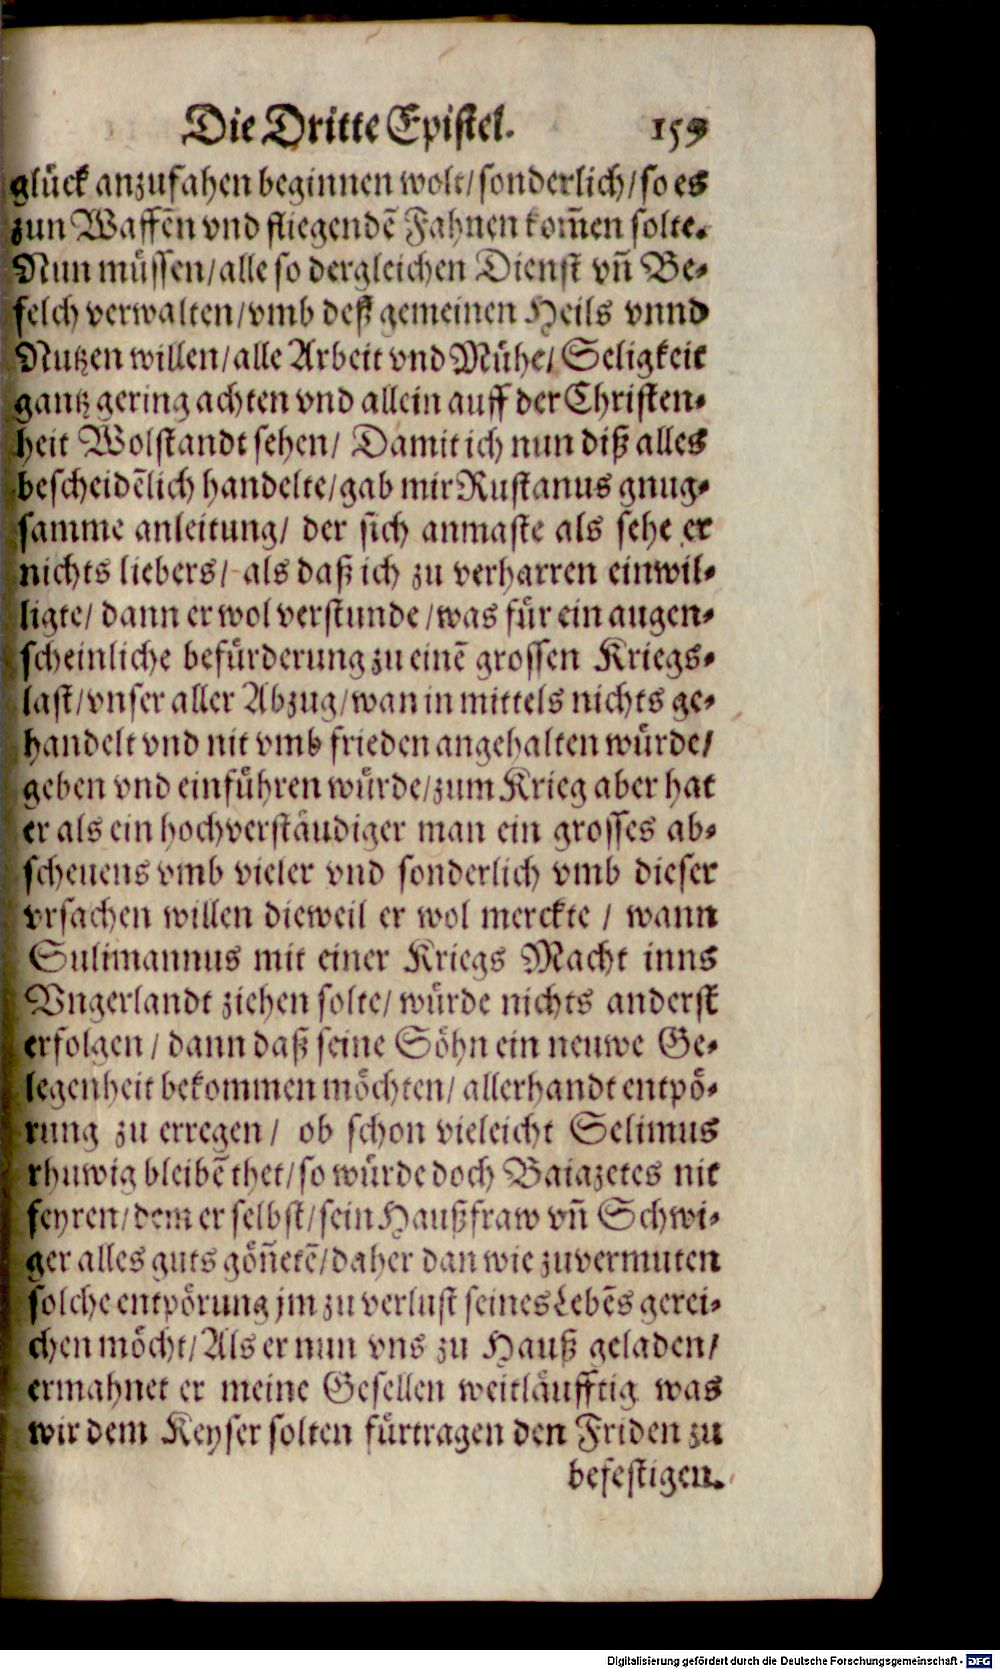 Die Dritte Epistel. 159
glück anzufahen beginnen wolt/ sonderlich/ so es
zun Waffẽn vnd fliegendẽ Fahnen kom̃en solte.
Nun müssen/ alle so dergleichen Dienst vñ Be-
felch verwalten/ vmb deß gemeinen Heils vnnd
Nutzen willen/ alle Arbeit vnd Mühe/ Seligkeit
gantz gering achten vnd allein auff der Christen-
heit Wolstandt sehen/ Damit ich nun diß alles
bescheidẽlich handelte/ gab mir Rustanus gnug-
samme anleitung/ der sich anmaste als sehe er
nichts liebers/ als daß ich zu verharren einwil-
ligte/ dann er wol verstunde/ was für ein augen-
scheinliche befürderung zu einẽ grossen Kriegs-
last/ vnser aller Abzug/ wan in mittels nichts ge-
handelt vnd nit vmb frieden angehalten würde/
geben vnd einführen würde/ zum Krieg aber hat
er als ein hochverstäudiger man ein grosses ab-
scheuens vmb vieler vnd sonderlich vmb dieser
vrsachen willen dieweil er wol merckte / wann
Sulimannus mit einer Kriegs Macht inns
Vngerlandt ziehen solte/ würde nichts anderst
erfolgen / dann daß seine Söhn ein neuwe Ge-
legenheit bekommen möchten/ allerhandt entpö-
rung zu erregen / ob schon vieleicht Selimus
rhuwig bleibẽ thet/ so würde doch Baiazetes nit
feyren/ dem er selbst/ sein Haußfraw vñ Schwi-
ger alles guts gön̄etẽ/ daher dan wie zuvermuten
solche entpörung jm zu verlust seines Lebẽs gerei-
chen möcht/ Als er nun vns zu Hauß geladen/
ermahnet er meine Gesellen weitläufftig was
wir dem Keyser solten fürtragen den Friden zu
befestigen.
Digitalisierung gefördert durch die Deutsche Forschungsgemeinschaft - DFG